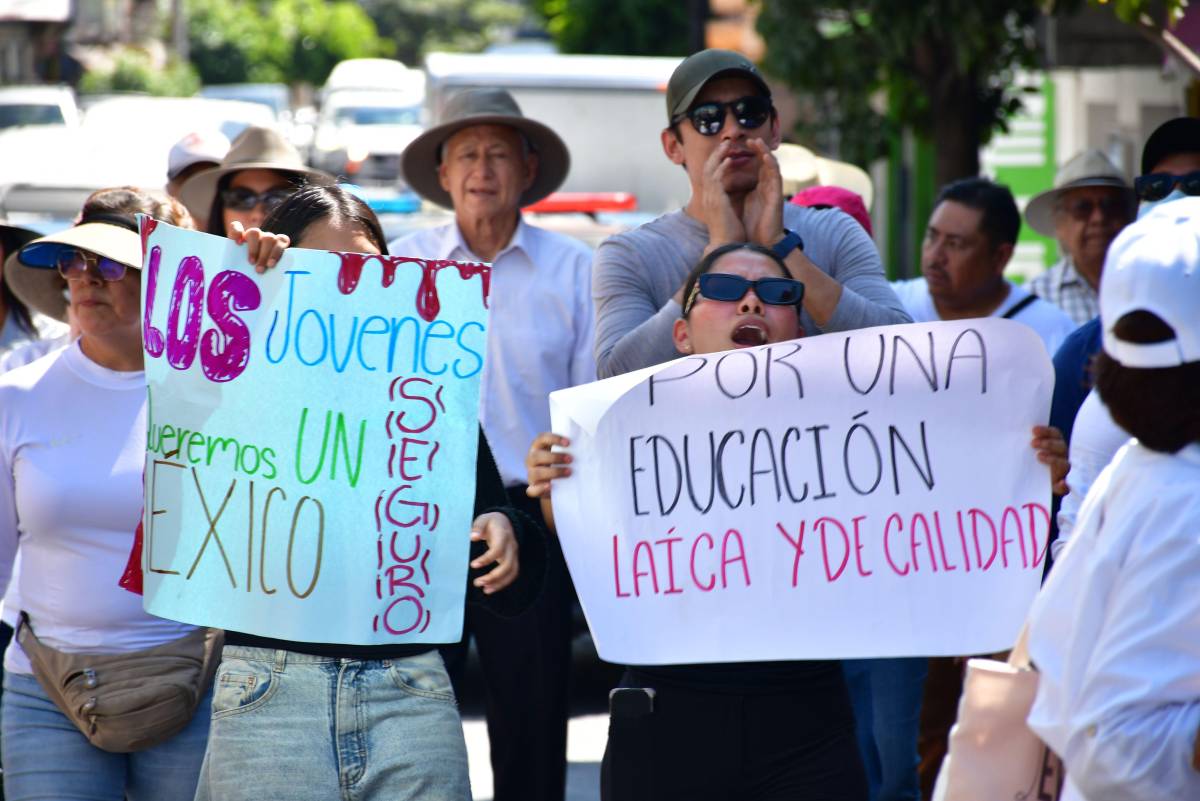 LOS Jovenes
queremos UN
MÉXICO
SEGURO
POR UNA
EDUCACIÓN
LAÍCA Y DE CALIDAD